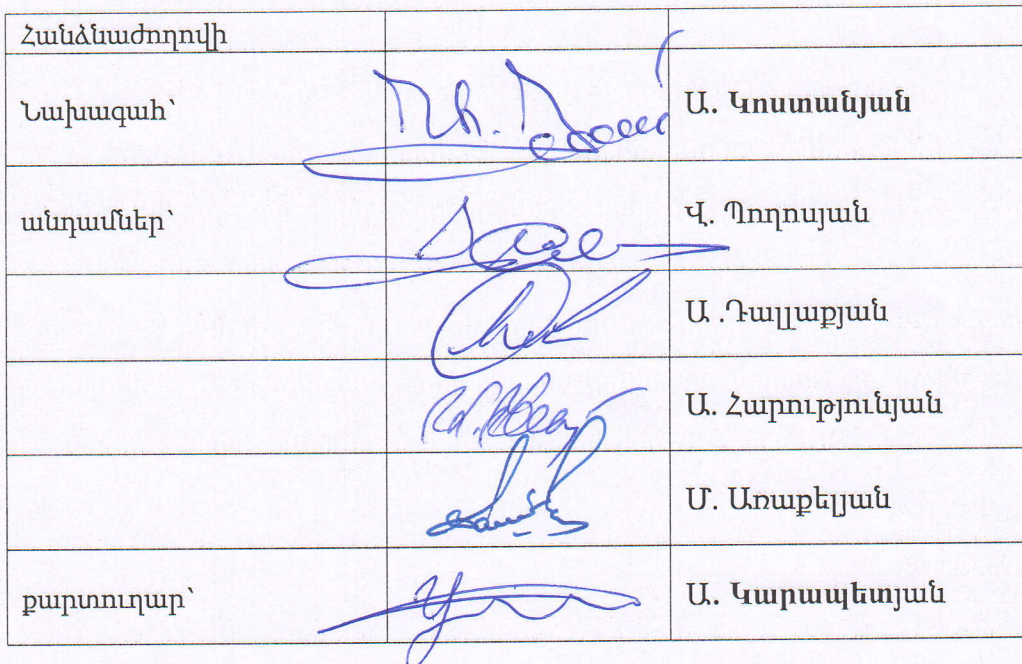 Հանձնաժողովի
Նախագահ՝ Ա. Կոստանյան
անդամներ՝ Վ. Պողոսյան
Ա .Դալլաքյան
Ա. Հարությունյան
Մ. Առաքելյան
քարտուղար՝ Ա. Կարապետյան